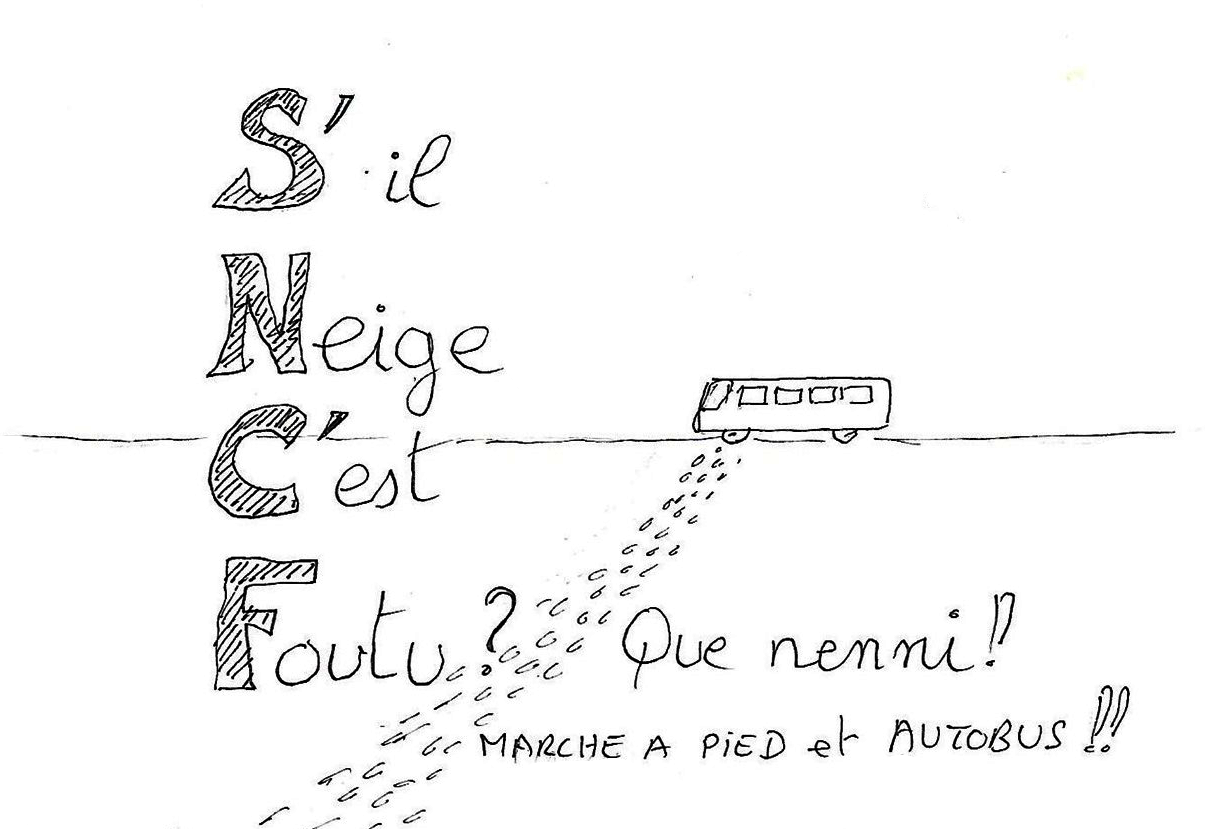 S'il
Neige
C'est
Foutu? Que nenni!!
MARCHE A PIED et AUTOBUS!!!